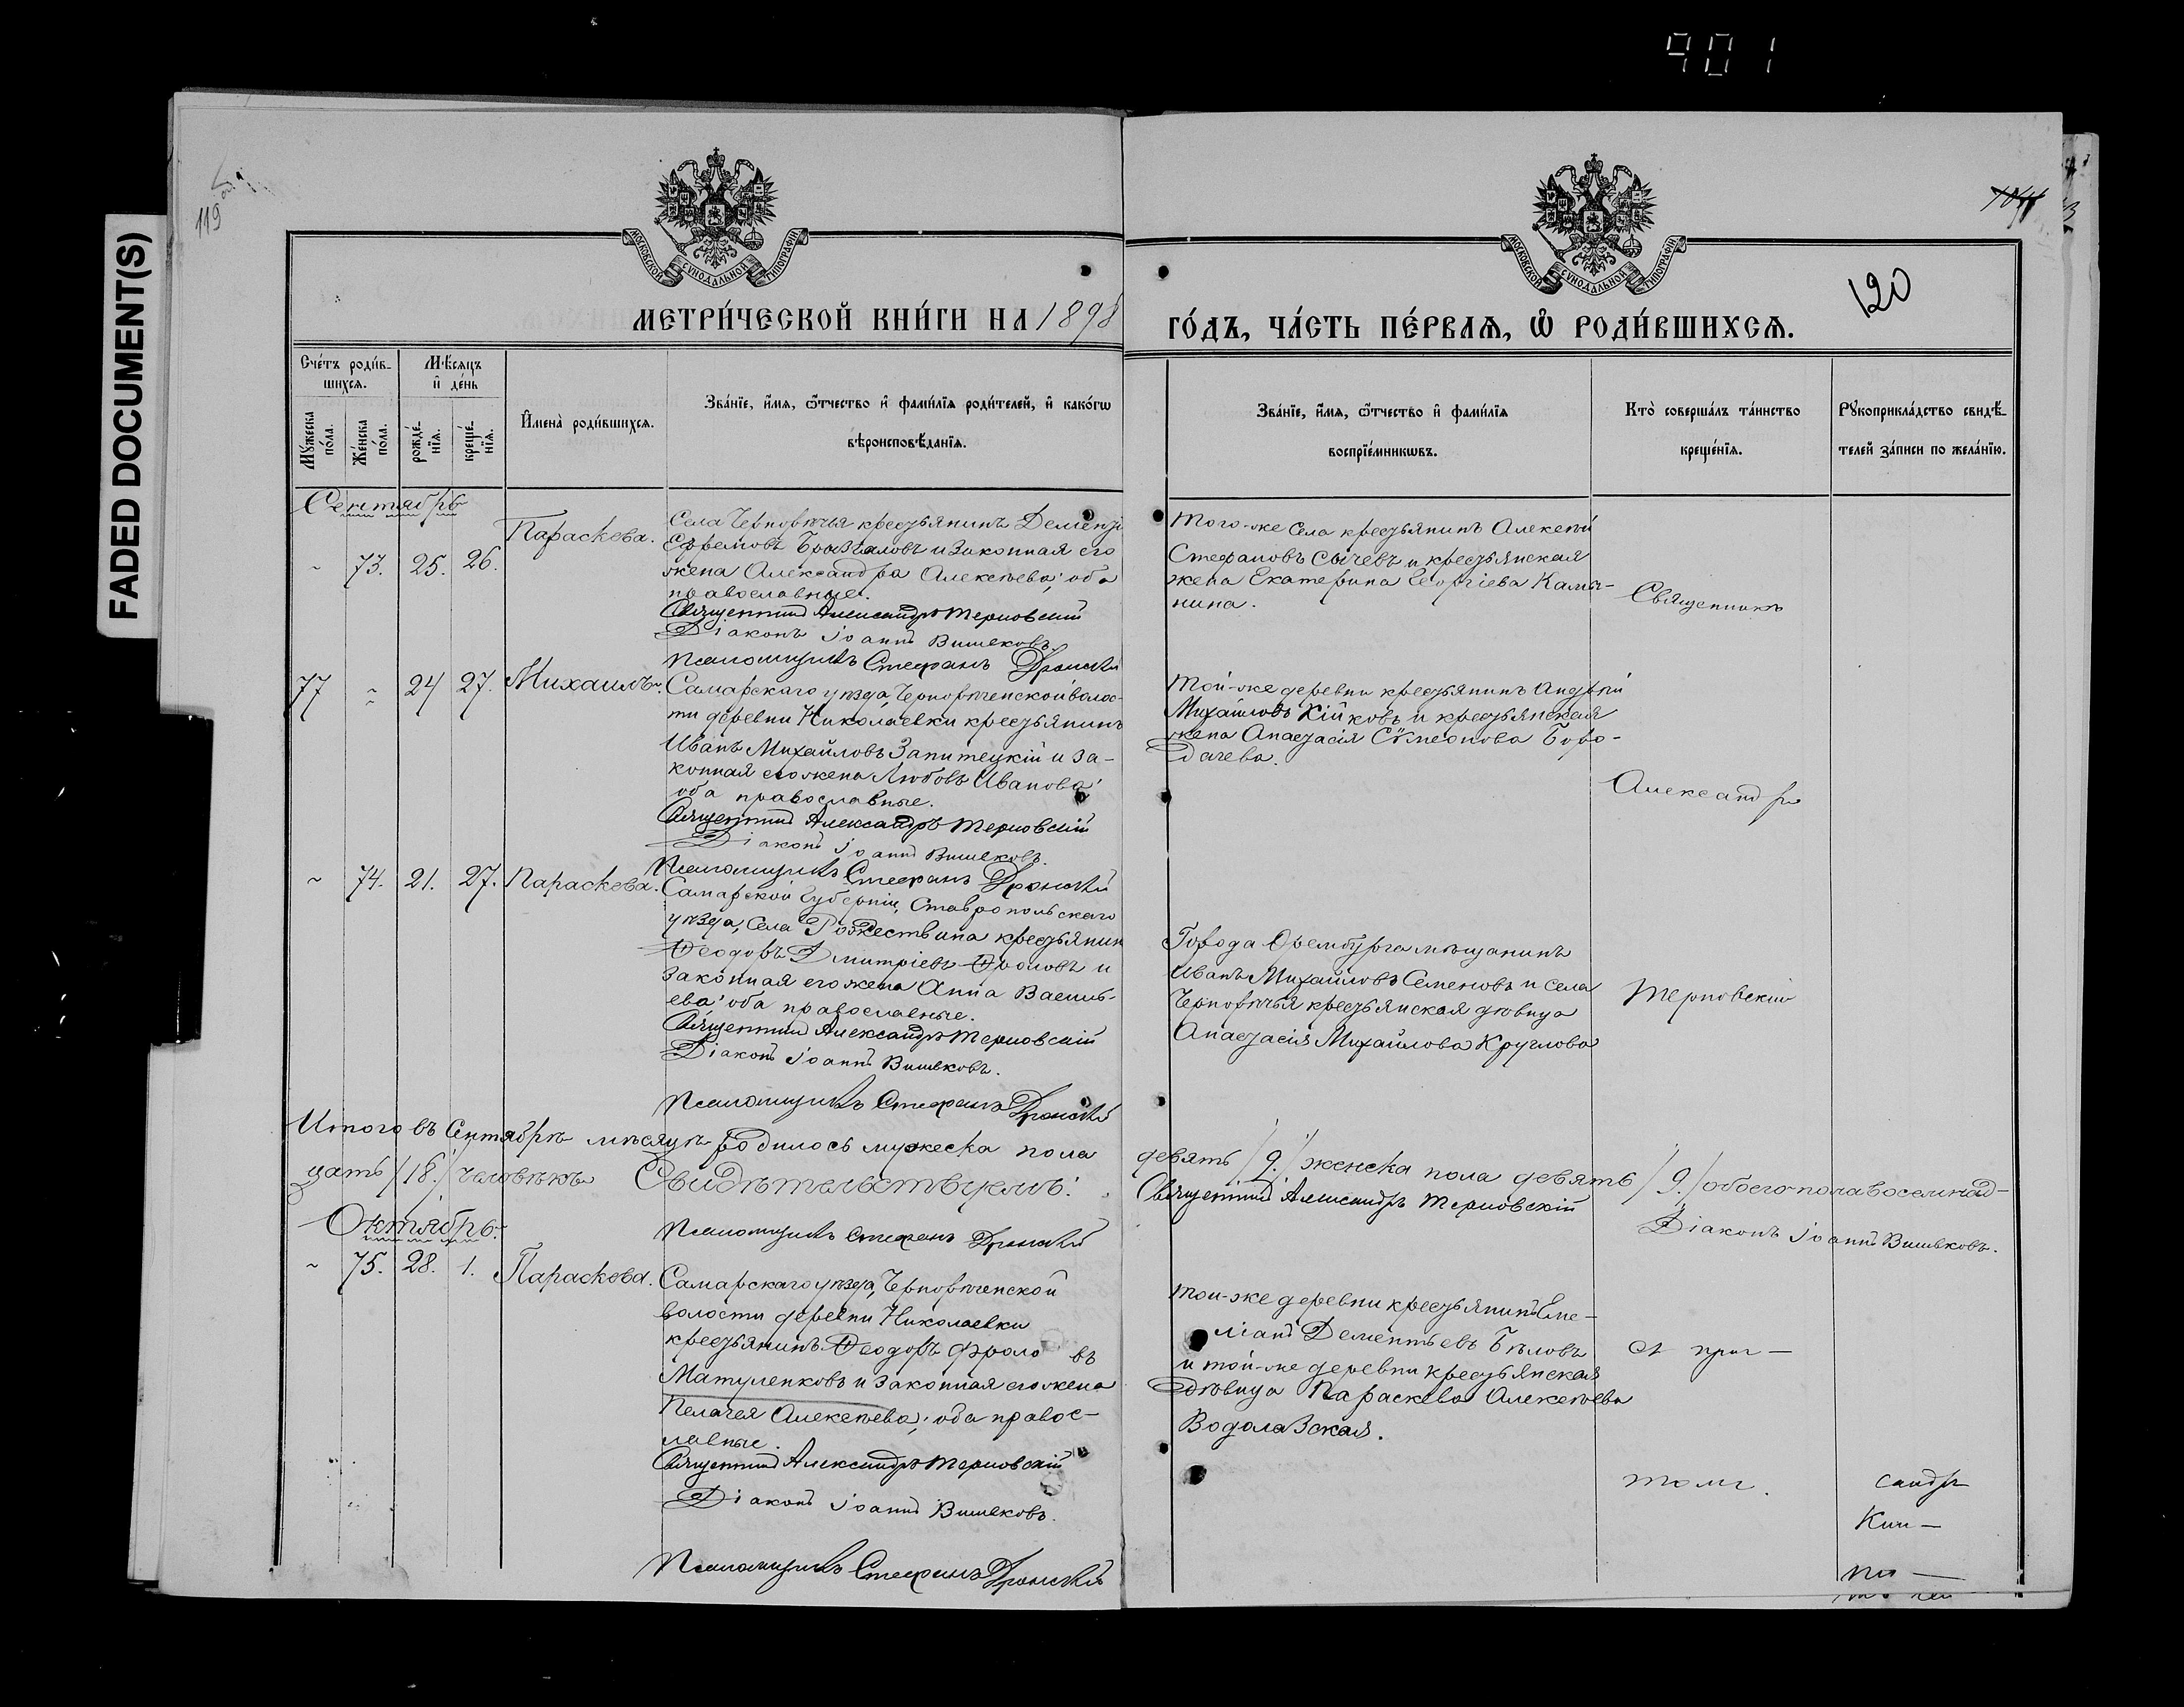 901
FADED DOCUMENT(S)
119
120
МОСКОВСКОЙ СѴНОДАЛЬНОЙ ТИПОГРАФІИ
МОСКОВСКОЙ СѴНОДАЛЬНОЙ ТИПОГРАФІИ
МЕТРИ́ЧЕСКОЙ КНИ́ГИ НА 1898
ГО́ДЪ, ЧА́СТЬ ПЕ́РВАѦ, Ѿ РОДИ́ВШИХСѦ.
Сче́тъ роди́в-
шихсѧ.
Мѣ́сѧцъ
и҆ де́нь
Мꙋ́жеска по́ла.
Же́нска по́ла.
рожде́-нїѧ.
креще́-нїѧ.
И҆мена̀ роди́вшихсѧ.
Зва́нїе, и҆́мѧ, ѻ҆́тчество и҆ фами́лїѧ роди́телей, и҆ како́гѡ
вѣроисповѣ́данїѧ.
Зва́нїе, и҆́мѧ, ѻ҆́тчество и҆ фами́лїѧ
воспрїе́мникѡвъ.
Кто̀ соверша́лъ та́инство
креще́нїѧ.
Рꙋкоприкла́дство свидѣ́-
телей за́писи по жела́нїю.
Сентябрь
73. 25. 26. Параскева.
Села Чернорѣчья крестьянинъ Дементій
Ефремовъ Брызгаловъ и законная его
жена Александра Алексѣева; оба
православные.
Священникъ Александръ Терновскій
Діаконъ Іоаннъ Вишвковъ.
Псаломщикъ Стефанъ
Того-же села крестьянинъ Алексѣй
Стефановъ Сычевъ и крестьянская
жена Екатерина Георгіева Камы-
нина.
Священникъ
77 24 27. Михаилъ.
Самарскаго уѣзда, Чернорѣченской волос-
ти деревни Николаевки крестьянинъ
Иванъ Михайловъ Запитецкій и за-
конная его жена Любовь Иванова;
оба православные.
Священникъ Александръ Терновскій
Діаконъ Іоаннъ Вишвковъ.
Псаломщикъ Стефанъ
Той-же деревни крестьянинъ Андрей
Михайловъ Кійковъ и крестьянская
жена Анастасія Сѵмеонова Боро-
дачева.
Александръ
74. 21. 27. Параскева.
Самарской губерніи, Ставропольскаго
уѣзда, села Рождествина крестьянинъ
Ѳеодоръ Дмитріевъ Ѳроловъ и
законная его жена Анна Василь-
ева; оба православные.
Священникъ Александръ Терновскій
Діаконъ Іоаннъ Вишвковъ.
Псаломщикъ Стефанъ
Города Оренбурга мѣщанинъ
Иванъ Михайловъ Семеновъ и села
Чернорѣчья крестьянская дѣвица
Анастасія Михайлова Круглова
Терновскій
Итого въ Сентябрѣ мѣсяцѣ родилось мужеска пола
девять /9./ женска пола девять /9./ обоего пола восемнад-
цать /18./ человѣкъ Свидѣтельствуемъ:
Священникъ Александръ Терновскій
Діаконъ Іоаннъ Вишвковъ.
Псаломщикъ Стефанъ
Октябрь.
75. 28. 1. Параскева.
Самарскаго уѣзда, Чернорѣченской
волости деревни Николаевки
крестьянинъ Ѳеодоръ Фроловъ
Матуленковъ и законная его жена
Пелагея Алексѣева; оба правос-
лавные.
Священникъ Александръ Терновскій
Діаконъ Іоаннъ Вишвковъ.
Псаломщикъ Стефанъ
Той-же деревни крестьянинъ Еме-
ліанъ Дементьевъ Бѣловъ
и той-же деревни крестьянская
дѣвица Параскева Алексѣева
Водолазская.
съ прич-
томъ.
сандръ